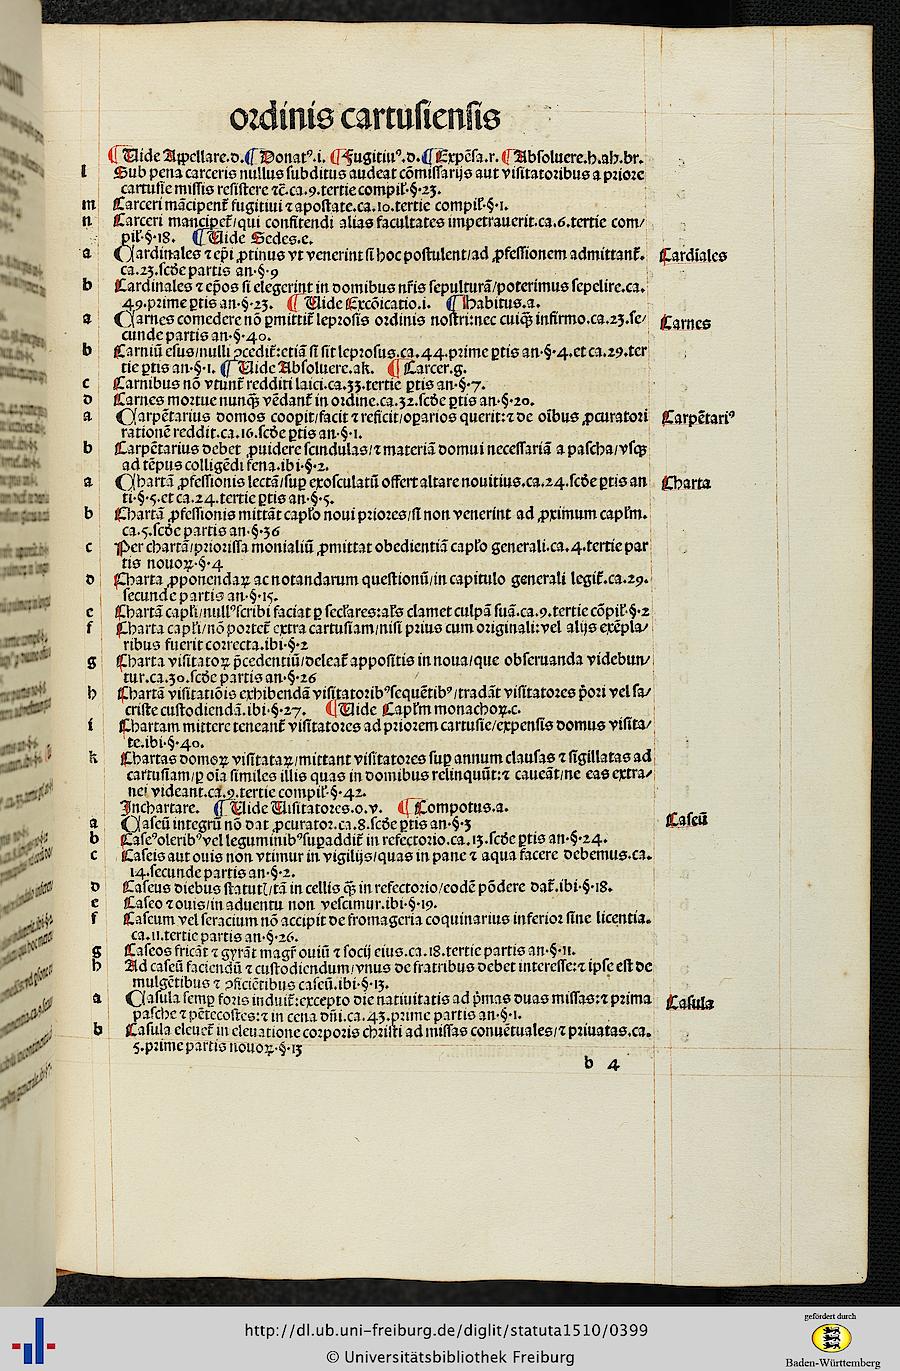 ordinis cartusiensis
¶ Uide Appellare.d. ¶ Donatꝰ.i. ¶ Fugitiuꝰ.d. ¶ Expẽsa.r. ¶ Absoluere.h.ah.br.
l Sub pena carceris nullus subditus audeat cõmissarijs aut visitatoribus a priore
cartusie missis resistere ⁊c̃.ca.9.tertie compil̃.§.23.
m Carceri mãcipent᷑ fugitiui ⁊ apostate.ca.10.tertie compil̃.§.1.
n Carceri mancipet᷑/qui confitendi alias facultates impetrauerit.ca.6.tertie com/
pil̃.§.18. ¶ Uide Sedes.e.
a Cardinales ⁊ ep̃i ꝓtinus vt venerint si hoc postulent/ad ꝓfessionem admittant᷑. Cardiales
ca.23.scd̃e partis an.§.9
b Cardinales ⁊ ep̃os si elegerint in domibus nr̃is sepulturã/poterimus sepelire.ca.
49.prime ꝑtis an.§.23. ¶ Uide Excõicatio.i. ¶ Habitus.a.
a Carnes comedere nõ ꝑmittit᷑ leprosis ordinis nostri:nec cuiqꝫ infirmo.ca.23.se/ Carnes
cunde partis an.§.40.
b Carniũ esus/nulli ꝯcedit᷑:etiã si sit leprosus.ca.44.prime ꝑtis an.§.4.et ca.29.ter
tie ꝑtis an.§.1. ¶ Uide Absoluere.ak. ¶ Carcer.g.
c Carnibus nõ vtunt᷑ redditi laici.ca.33.tertie ꝑtis an.§.7.
d Carnes mortue nunqꝫ vẽdant᷑ in ordine.ca.32.scd̃e ꝑtis an.§.20.
a Carpẽtarius domos coopit/facit ⁊ reficit/oꝑarios querit:⁊ de oĩbus ꝓcuratori Carpẽtariꝰ
rationẽ reddit.ca.16.scd̃e ꝑtis an.§.1.
b Carpẽtarius debet ꝓuidere scindulas/⁊ materiã domui necessariã a pascha/vsqꝫ
ad tẽpus colligẽdi fena.ibi.§.2.
a Chartã ꝓfessionis lectã/suꝑ exosculatũ offert altare nouitius.ca.24.scd̃e ꝑtis an Charta
ti.§.5.et ca.24.tertie ꝑtis an.§.5.
b Chartã ꝓfessionis mittãt capl̃o noui priores/si non venerint ad ꝓximum capl̃m.
ca.5.scd̃e partis an.§.36
c Per chartã/priorissa monialiũ ꝓmittat obedientiã capl̃o generali.ca.4.tertie par
tis nouoꝝ.§.4
d Charta ꝓponendaꝝ ac notandarum questionũ/in capitulo generali legit᷑.ca.29.
secunde partis an.§.15.
e Chartã capl̃i/nullꝰ scribi faciat ꝑ secl̃ares:al̃s clamet culpã suã.ca.9.tertie cõpil̃.§.2
f Charta capl̃i/nõ portet᷑ extra cartusiam/nisi prius cum originali:vel alijs exẽpla/
ribus fuerit correcta.ibi.§.2
g Charta visitatoꝝ p̃cedentiũ/deleat᷑ appositis in noua/que obseruanda videbun/
tur.ca.30.scd̃e partis an.§.26
h Chartã visitatiõis exhibendã visitatoribꝰ sequẽtibꝰ/tradãt visitatores p̃ori vel sa/
criste custodiendã.ibi.§.27. ¶ Uide Capl̃m monachoꝝ.c.
i Chartam mittere teneant᷑ visitatores ad priorem cartusie/expensis domus visita/
te.ibi.§.40.
k Chartas domoꝝ visitataꝝ/mittant visitatores suꝑ annum clausas ⁊ sigillatas ad
cartusiam/ꝑ oĩa similes illis quas in domibus relinquũt:⁊ caueãt/ne eas extra/
nei videant.ca.9.tertie compil̃.§.42.
Inchartare. ¶ Uide Uisitatores.o.v. ¶ Compotus.a.
a Caseũ integrũ nõ dat ꝓcurator.ca.8.scd̃e ꝑtis an.§.3 Caseũ
b Caseꝰ oleribꝰ vel leguminibꝰ suꝑaddit᷑ in refectorio.ca.13.scd̃e ꝑtis an.§.24.
c Caseis aut ouis non vtimur in vigilijs/quas in pane ⁊ aqua facere debemus.ca.
14.secunde partis an.§.2.
d Caseus diebus statut̃/tã in cellis qꝫ in refectorio/eodẽ põdere dat᷑.ibi.§.18.
e Caseo ⁊ ouis/in aduentu non vescimur.ibi.§.19.
f Caseum vel seracium nõ accipit de fromageria coquinarius inferior sine licentia.
ca.11.tertie partis an.§.26.
g Caseos fricãt ⁊ gyrãt magr̃ ouiũ ⁊ socij eius.ca.18.tertie partis an.§.11.
h Ad caseũ faciendũ ⁊ custodiendum/vnus de fratribus debet interesse:⁊ ipse est de
mulgẽtibus ⁊ ꝯficiẽtibus caseũ.ibi.§.13.
a Casula semꝑ foris induit᷑:excepto die natiuitatis ad p̃mas duas missas:⁊ prima Casula
pasche ⁊ pẽtecostes:⁊ in cena dñi.ca.43.prime partis an.§.1.
b Casula eleuet᷑ in eleuatione corporis christi ad missas conuẽtuales/⁊ priuatas.ca.
5.prime partis nouoꝝ.§.13
b 4
http://dl.ub.uni-freiburg.de/diglit/statuta1510/0399
© Universitätsbibliothek Freiburg
gefördert durch
Baden-Württemberg